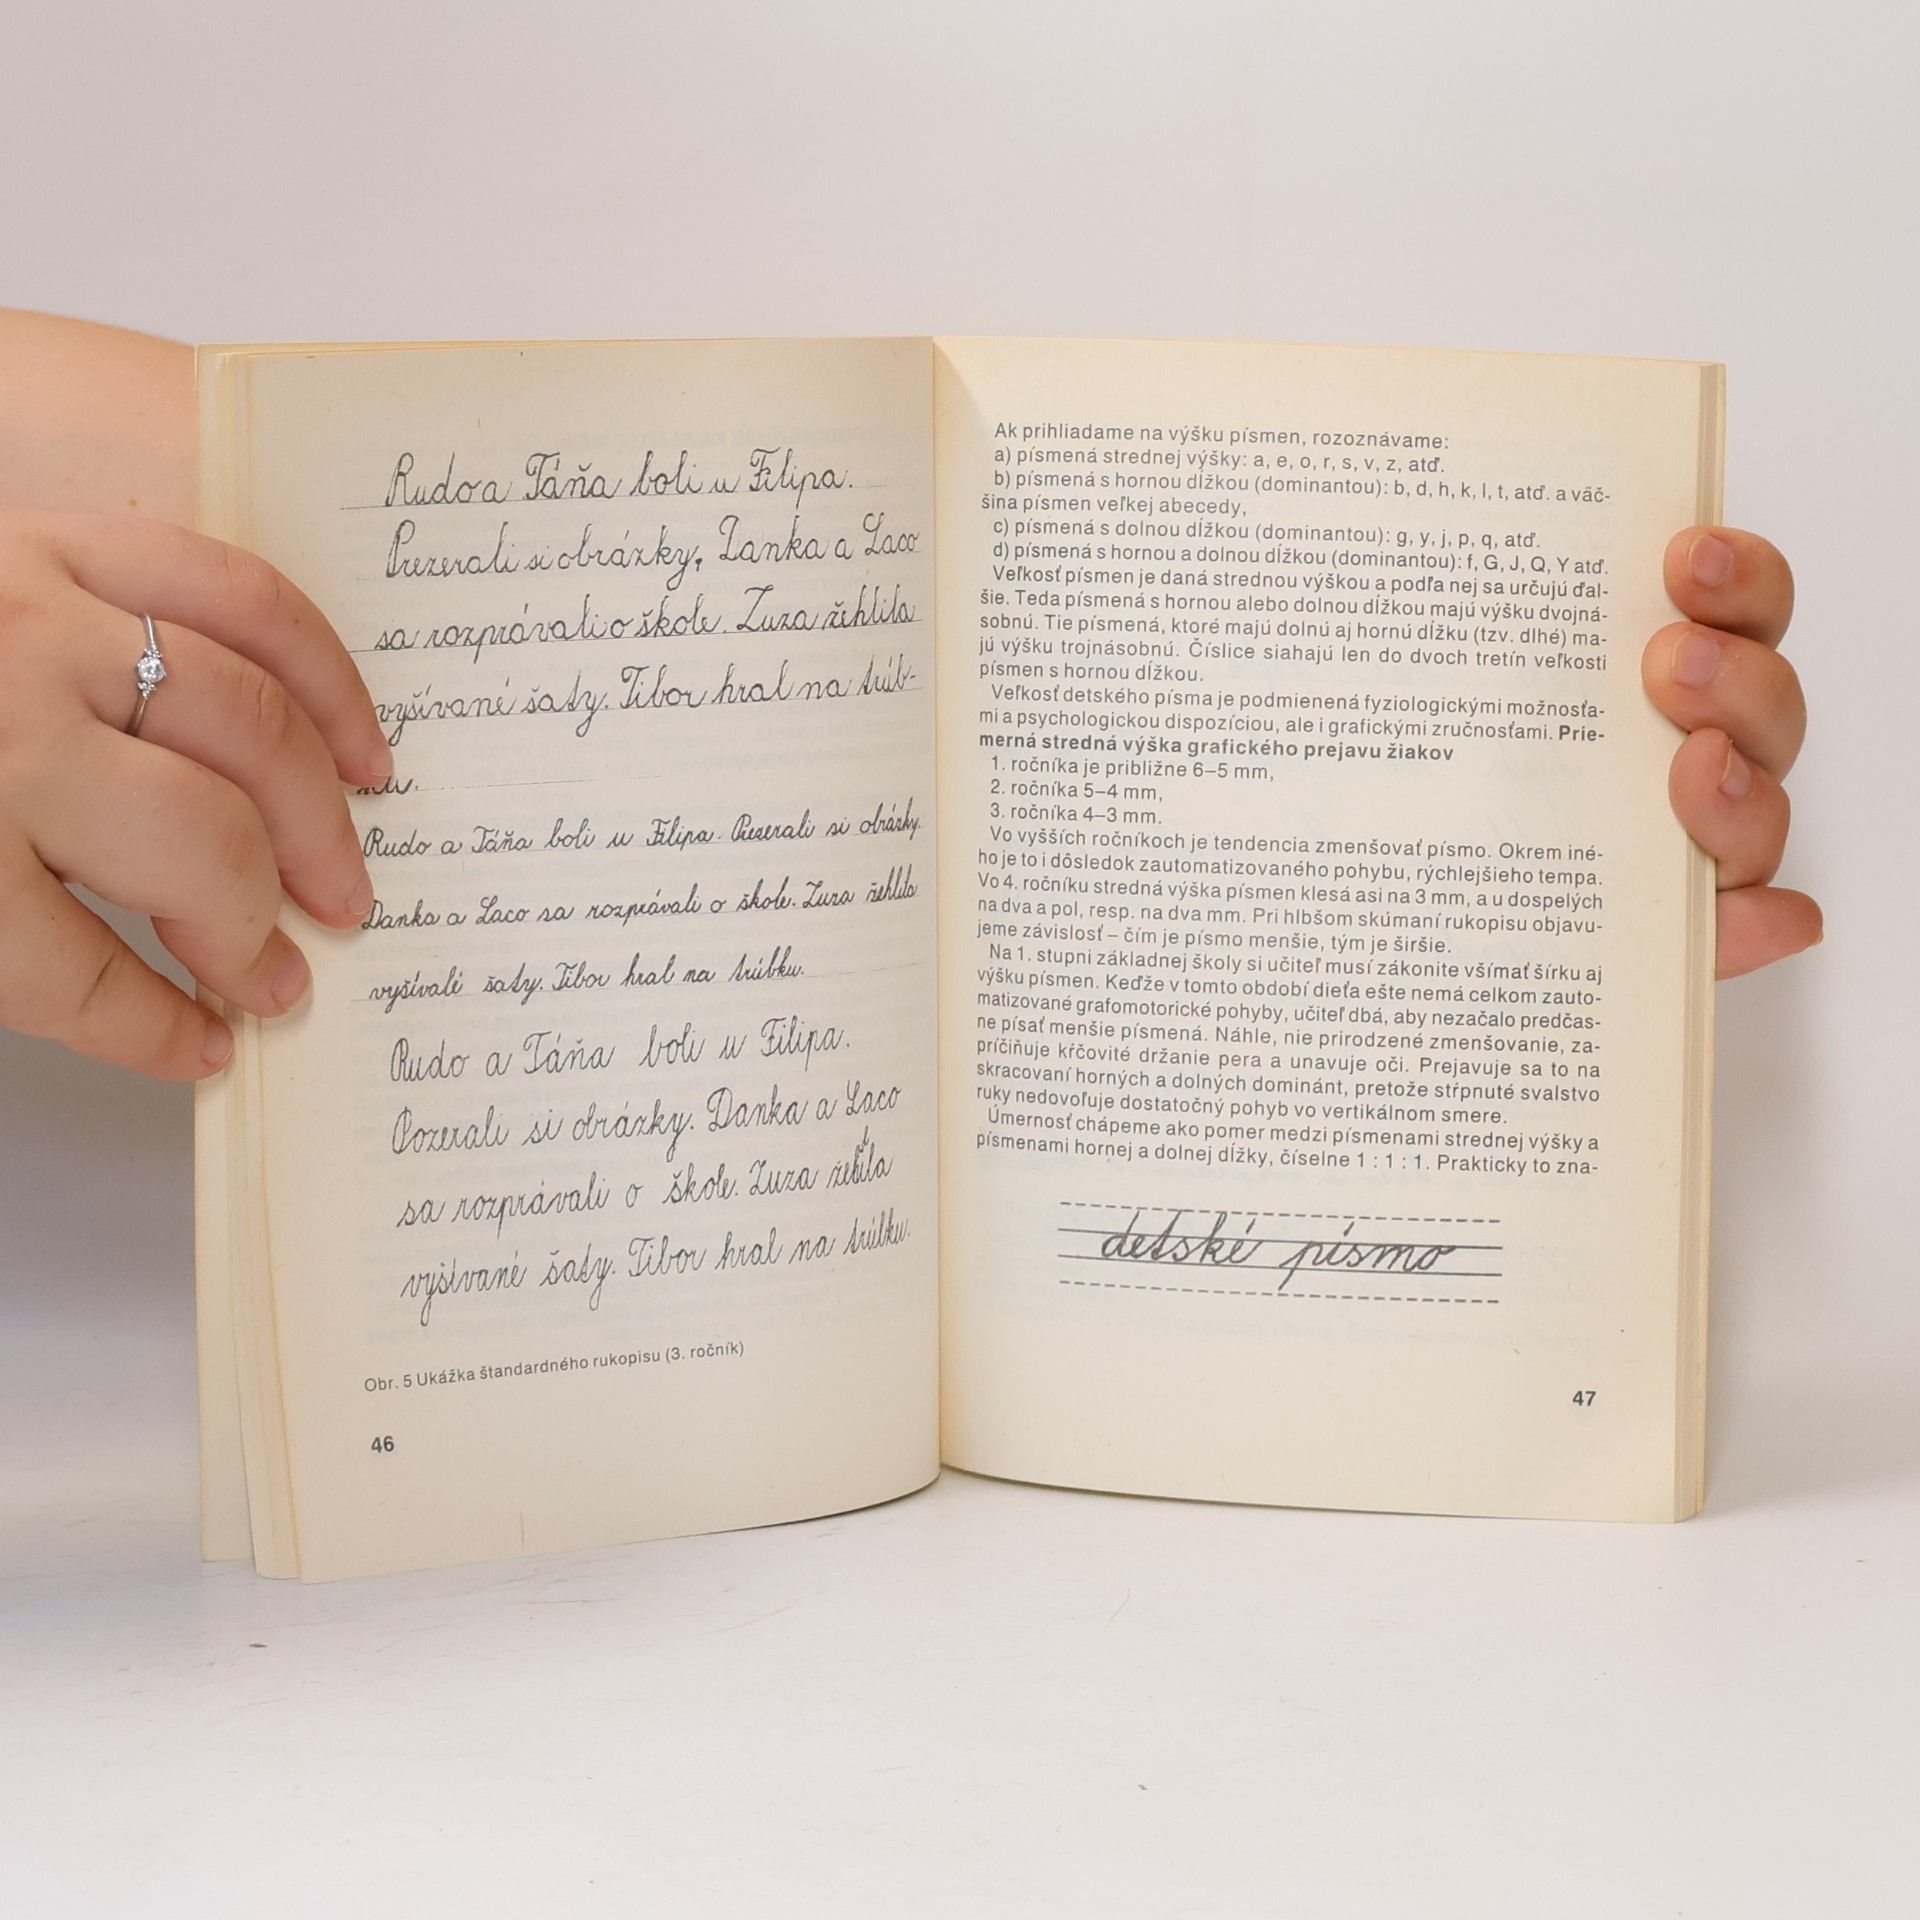 Rudo a Táňa boli u Filipa.
Prezerali si obrázky, Danka a Laco
sa rozprávali o škole. Zuza žehlila
vyšívané šaty. Tibor hral na trúb-
Rudo a Táňa boli u Filipa. Prezerali si obrázky.
Danka a Laco sa rozprávali o škole. Zuza žehlila
vyšívalé šaty. Tibor hral na trúbku.
Rudo a Táňa boli u Filipa.
Pozerali si obrázky. Danka a Laco
sa rozprávali o škole. Zuza
vyšívané šaty. Tibor hral na trúbku.
Obr. 5 Ukážka štandardného rukopisu (3. ročník)
46
Ak prihliadame na výšku písmen, rozoznávame:
a) písmená strednej výšky: a, e, o, r, s, v, z, atď.
b) písmená s hornou dĺžkou (dominantou): b, d, h, k, l, t, atď. a väč-
šina písmen veľkej abecedy,
c) písmená s dolnou dĺžkou (dominantou): g, y, j, p, q, atď.
d) písmená s hornou a dolnou dĺžkou (dominantou): f, G, J, Q, Y atď.
Veľkosť písmen je daná strednou výškou a podľa nej sa určujú ďal-
šie. Teda písmená s hornou alebo dolnou dĺžkou majú výšku dvojná-
sobnú. Tie písmená, ktoré majú dolnú aj hornú dĺžku (tzv. dlhé) ma-
jú výšku trojnásobnú. Číslice siahajú len do dvoch tretín veľkosti
písmen s hornou dĺžkou.
Veľkosť detského písma je podmienená fyziologickými možnosťa-
mi a psychologickou dispozíciou, ale i grafickými zručnosťami. Prie-
merná stredná výška grafického prejavu žiakov
1. ročníka je približne 6–5 mm,
2. ročníka 5–4 mm,
3. ročníka 4–3 mm.
Vo vyšších ročníkoch je tendencia zmenšovať písmo. Okrem iné-
ho je to i dôsledok zautomatizovaného pohybu, rýchlejšieho tempa.
Vo 4. ročníku stredná výška písmen klesá asi na 3 mm, a u dospelých
na dva a pol, resp. na dva mm. Pri hlbšom skúmaní rukopisu objavu-
jeme závislosť – čím je písmo menšie, tým je širšie.
Na 1. stupni základnej školy si učiteľ musí zákonite všímať šírku aj
výšku písmen. Keďže v tomto období dieťa ešte nemá celkom zauto-
matizované grafomotorické pohyby, učiteľ dbá, aby nezačalo predčas-
ne písať menšie písmená. Náhle, nie prirodzené zmenšovanie, za-
príčiňuje kŕčovité držanie pera a unavuje oči. Prejavuje sa to na
skracovaní horných a dolných dominánt, pretože stŕpnuté svalstvo
ruky nedovoľuje dostatočný pohyb vo vertikálnom smere.
Úmernosť chápeme ako pomer medzi písmenami strednej výšky a
písmenami hornej a dolnej dĺžky, číselne 1 : 1 : 1. Prakticky to zna-
detské písmo
47